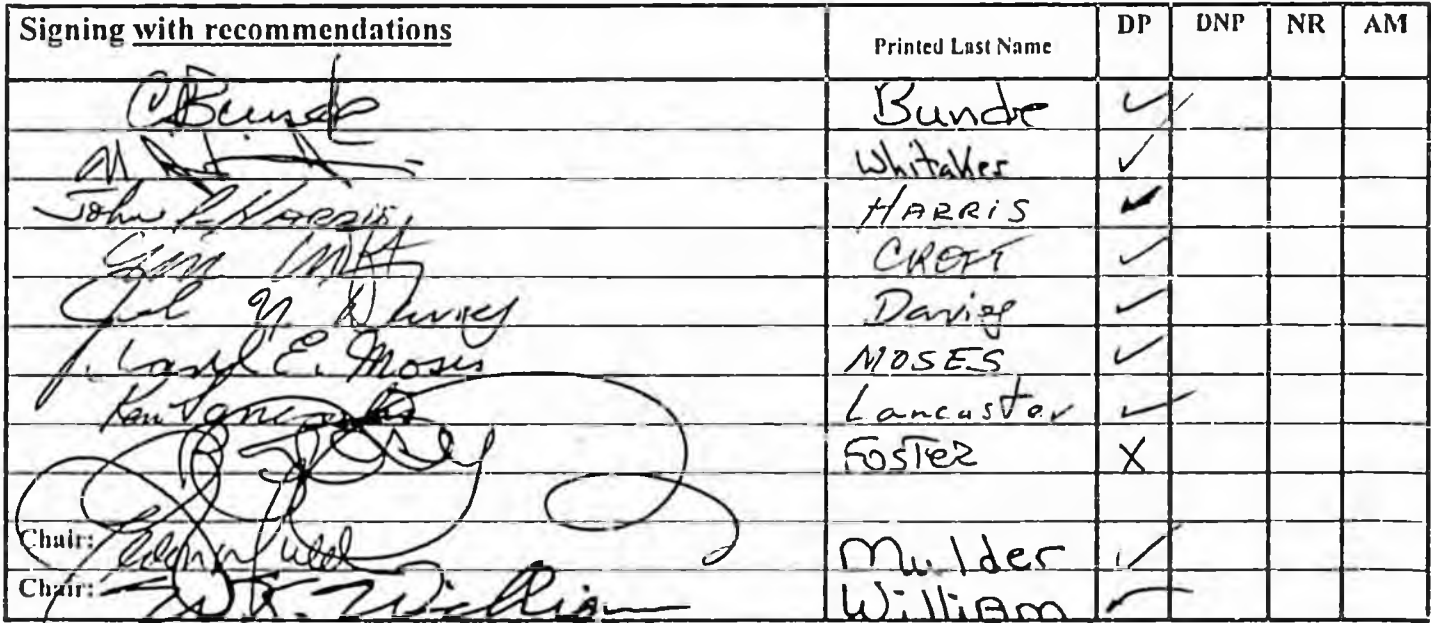 Signing with recommendations Printed Last Name DP DNP NR AM
C Bunde Bunde ✓
M Whitaker ✓
John R. Harris HARRIS ✓
CROFT ✓
Davies ✓
J. E. Moses MOSES ✓
Ken Lancaster Lancaster ✓
FOSTER X
Chair: Mulder ✓
Chair: W.K. William William ✓